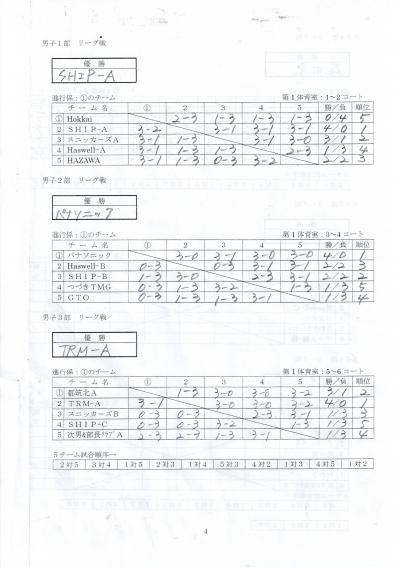 男子1部 リーグ戦
優勝
SHIP-A
進行係:①のチーム 第1体育室:1~2コート
チーム名 ① 2 3 4 5 勝/負 順位
① Hokkai 2-3 1-3 1-3 1-3 0/4 5
2 SHIP-A 3-2 3-1 3-1 3-1 4/0 1
3 スニッカーズA 3-1 1-3 3-1 3-0 3/1 2
4 Haswell-A 3-1 1-3 1-3 2-3 1/3 4
5 HAZAWA 3-1 1-3 0-3 3-2 2/2 3
男子2部 リーグ戦
優勝
パナソニック
進行係:①のチーム 第1体育室:3~4コート
チーム名 ① 2 3 4 5 勝/負 順位
① パナソニック 3-0 3-1 3-0 3-0 4/0 1
2 Haswell-B 0-3 0-3 3-1 3-1 2/2 3
3 SHIP-B 1-3 3-0 2-3 3-1 2/2 2
4 つづきTMG 0-3 1-3 3-2 1-3 1/3 5
5 GTO 0-3 1-3 1-3 3-1 1/3 4
男子3部 リーグ戦
優勝
TRM-A
進行係:①のチーム 第1体育室:5~6コート
チーム名 ① 2 3 4 5 勝/負 順位
① 都筑北A 1-3 3-0 3-0 3-2 3/1 2
2 TRM-A 3-1 3-0 3-0 3-2 4/0 1
3 スニッカーズB 0-3 0-3 2-3 3-1 1/3 3
4 SHIP-C 0-3 0-3 3-2 1-3 1/3 5
5 次男&部長クラブA 2-3 2-3 1-3 3-1 1/3 4
5チーム試合順序→
2対5 3対4 1対5 2対3 1対4 3対5 2対4 1対3 4対5 1対2
4